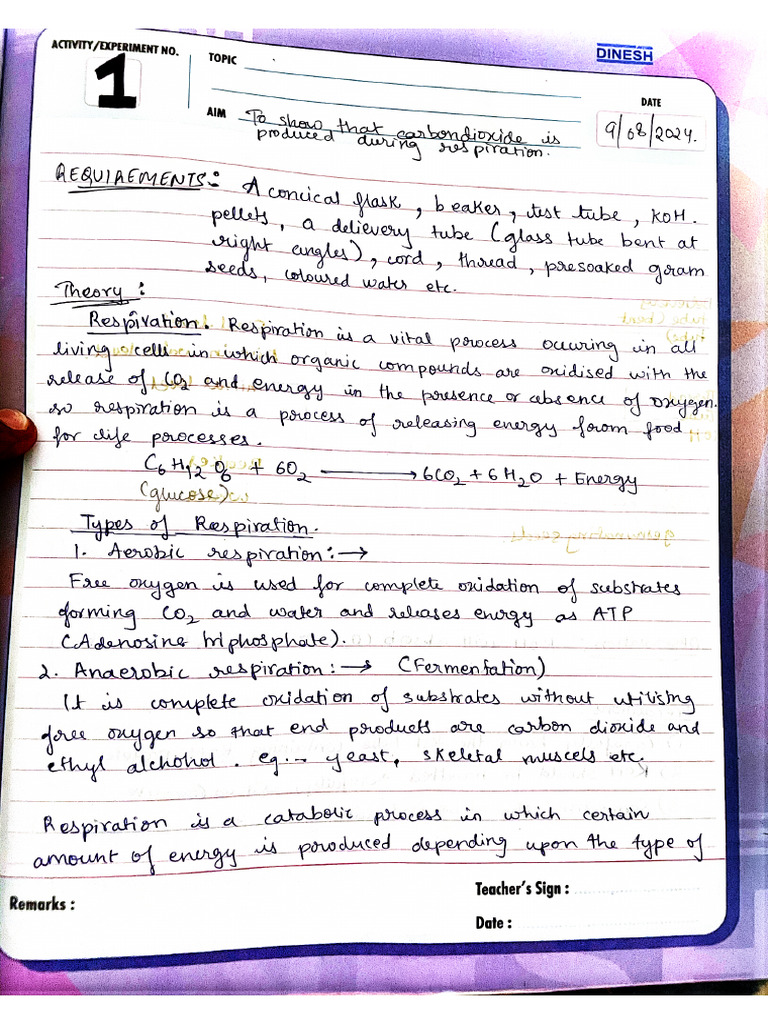 ACTIVITY/EXPERIMENT NO.
1
TOPIC
DINESH
DATE
9/08/2024.
AIM To show that carbondioxide is
produced during respiration.
REQUIREMENTS: A concical flask, beaker, test tube, KOH.
pellets, a delievery tube (glass tube bent at
right angles), cord, thread, presoaked gram
seeds, coloured water etc.
Theory:
Respiration: Respiration is a vital process occuring in all
living cells in which organic compounds are oxidised with the
release of CO2 and energy in the presence or absence of oxygen.
so respiration is a process of releasing energy from food
for life processes.
C6H12O6 + 6O2 ⟶ 6CO2 + 6H2O + Energy
(glucose)
Types of Respiration.
1. Aerobic respiration:→
Free oxygen is used for complete oxidation of substrates
forming CO2 and water and releases energy as ATP
(Adenosine triphosphate).
2. Anaerobic respiration:→ (Fermentation)
It is complete oxidation of substrates without utilising
free oxygen so that end products are carbon dioxide and
ethyl alchohol. eg.- yeast, skeletal muscels etc.
Respiration is a catabolic process in which certain
amount of energy is produced depending upon the type of
Teacher's Sign :
Remarks :
Date :